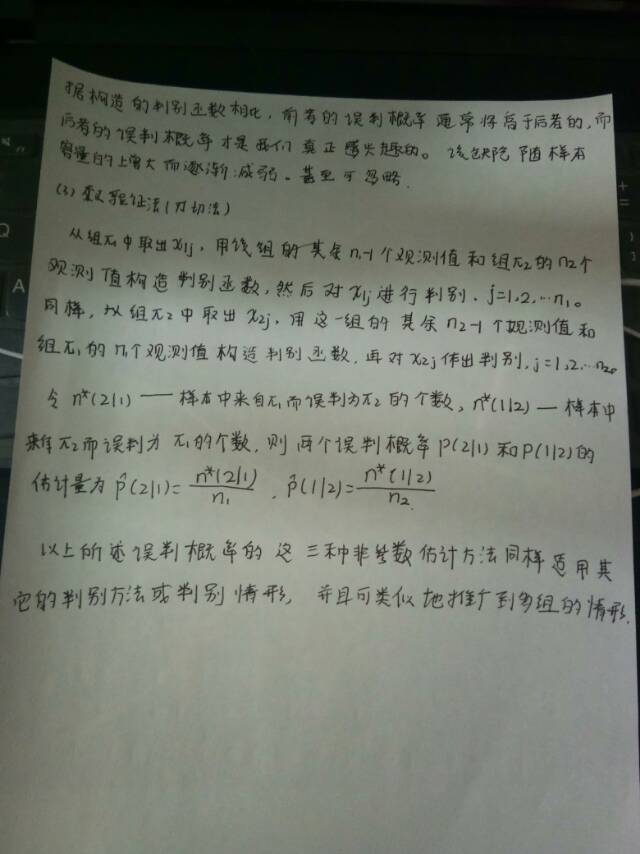 据构造的判别函数相比，前者的误判概率通常将高于后者的，而
后者的误判概率才是我们真正感兴趣的。该缺陷随样本
容量的上增大而逐渐减弱。甚至可忽略.
(3) 交叉验证法(刀切法)
从组π₁中取出x₁j，用该组的其余n₁-1个观测值和组π₂的n₂个
观测值构造判别函数，然后对x₁j进行判别．j=1,2,…n₁。
同样，从组π₂中取出x₂j，用这一组的其余n₂-1个观测值和
组π₁的n₁个观测值构造判别函数．再对x₂j作出判别，j=1,2…n₂。
令 n*(2|1) —— 样本中来自π₁而误判为π₂的个数，n*(1|2) — 样本中
来自π₂而误判为π₁的个数，则两个误判概率P(2|1)和P(1|2)的
估计量为 p̂(2|1)= n*(2|1)/n₁ ，p̂(1|2)= n*(1|2)/n₂
以上所述误判概率的这三种非参数估计方法同样适用其
它的判别方法或判别情形，并且可类似地推广到多组的情形.